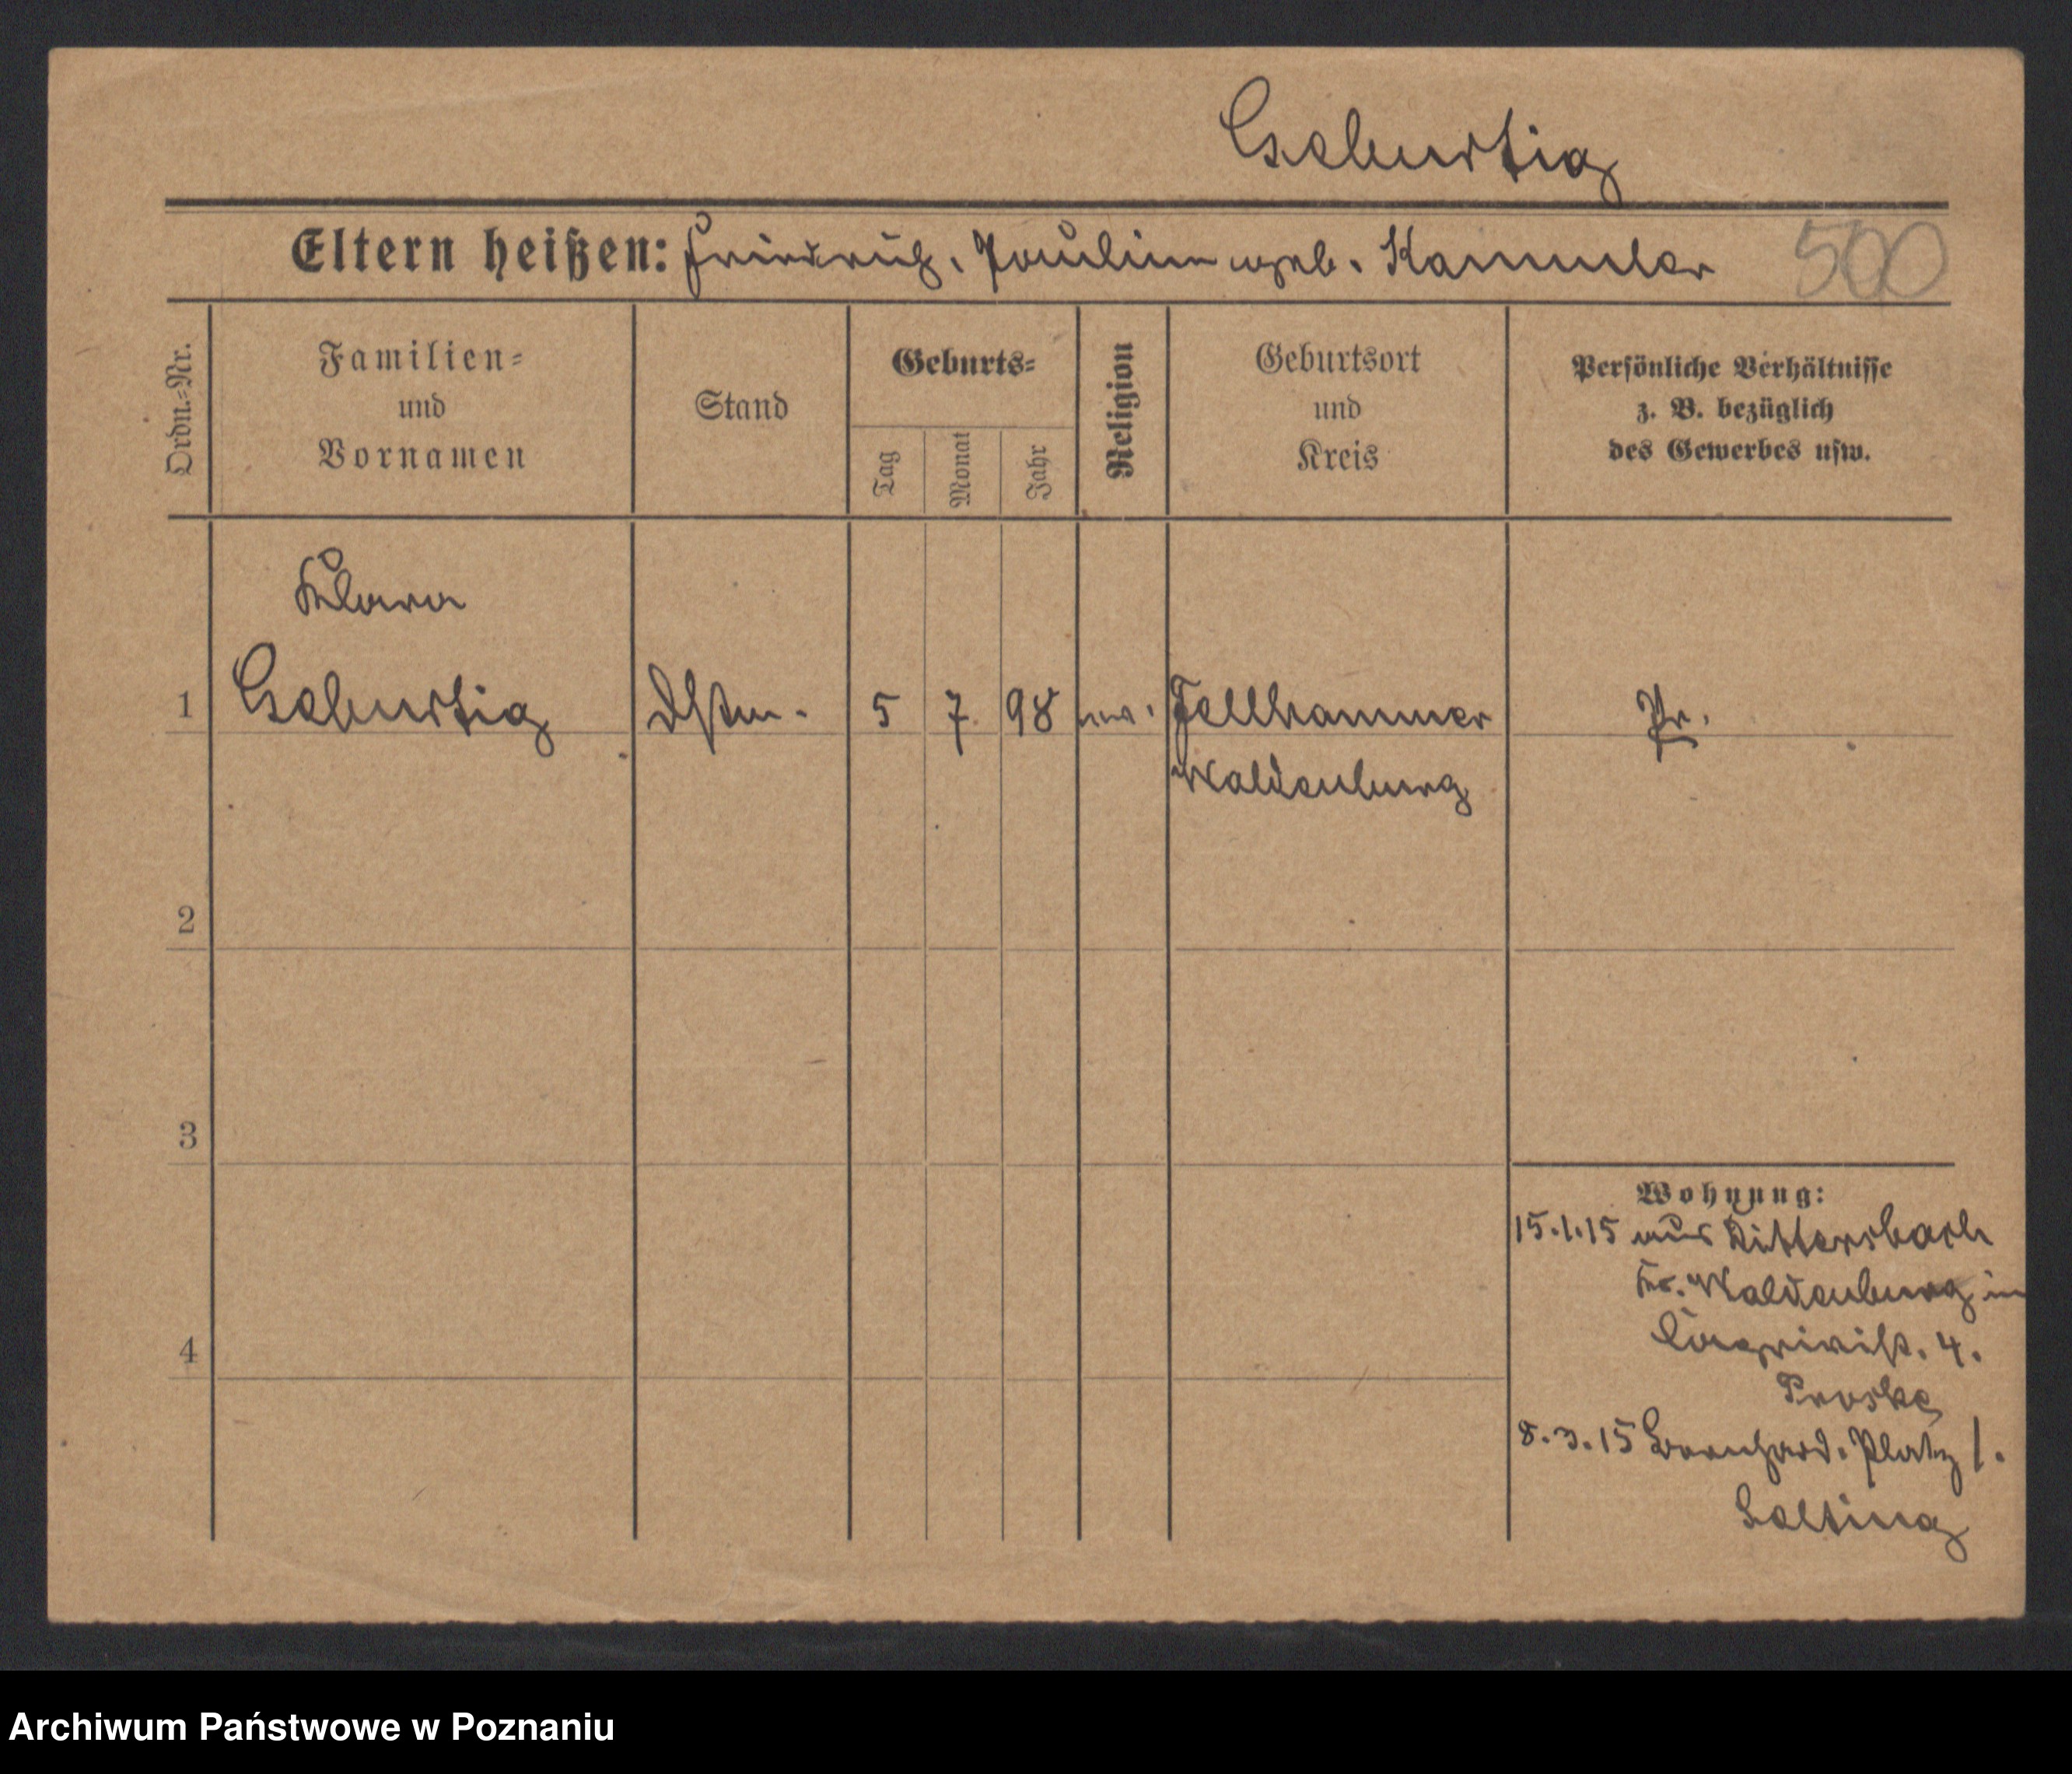 Geburtig
Eltern heißen: Friedrich. Pauline geb. Kammler 500
Ordn.=Nr.
Familien=
und
Vornamen
Stand
Geburts=
Tag
Monat
Jahr
Religion
Geburtsort
und
Kreis
Persönliche Verhältnisse
z. B. bezüglich
des Gewerbes usw.
Klara
1 Geburtig 5 7 98 Fellhammer Pr.
Waldenburg
2
3
Wohnung:
15.1.15 aus Dittersbach
Kr. Waldenburg in
4.
4
Proske
8.3.15 Bernhard. Platz 1.
Salting
Archiwum Państwowe w Poznaniu